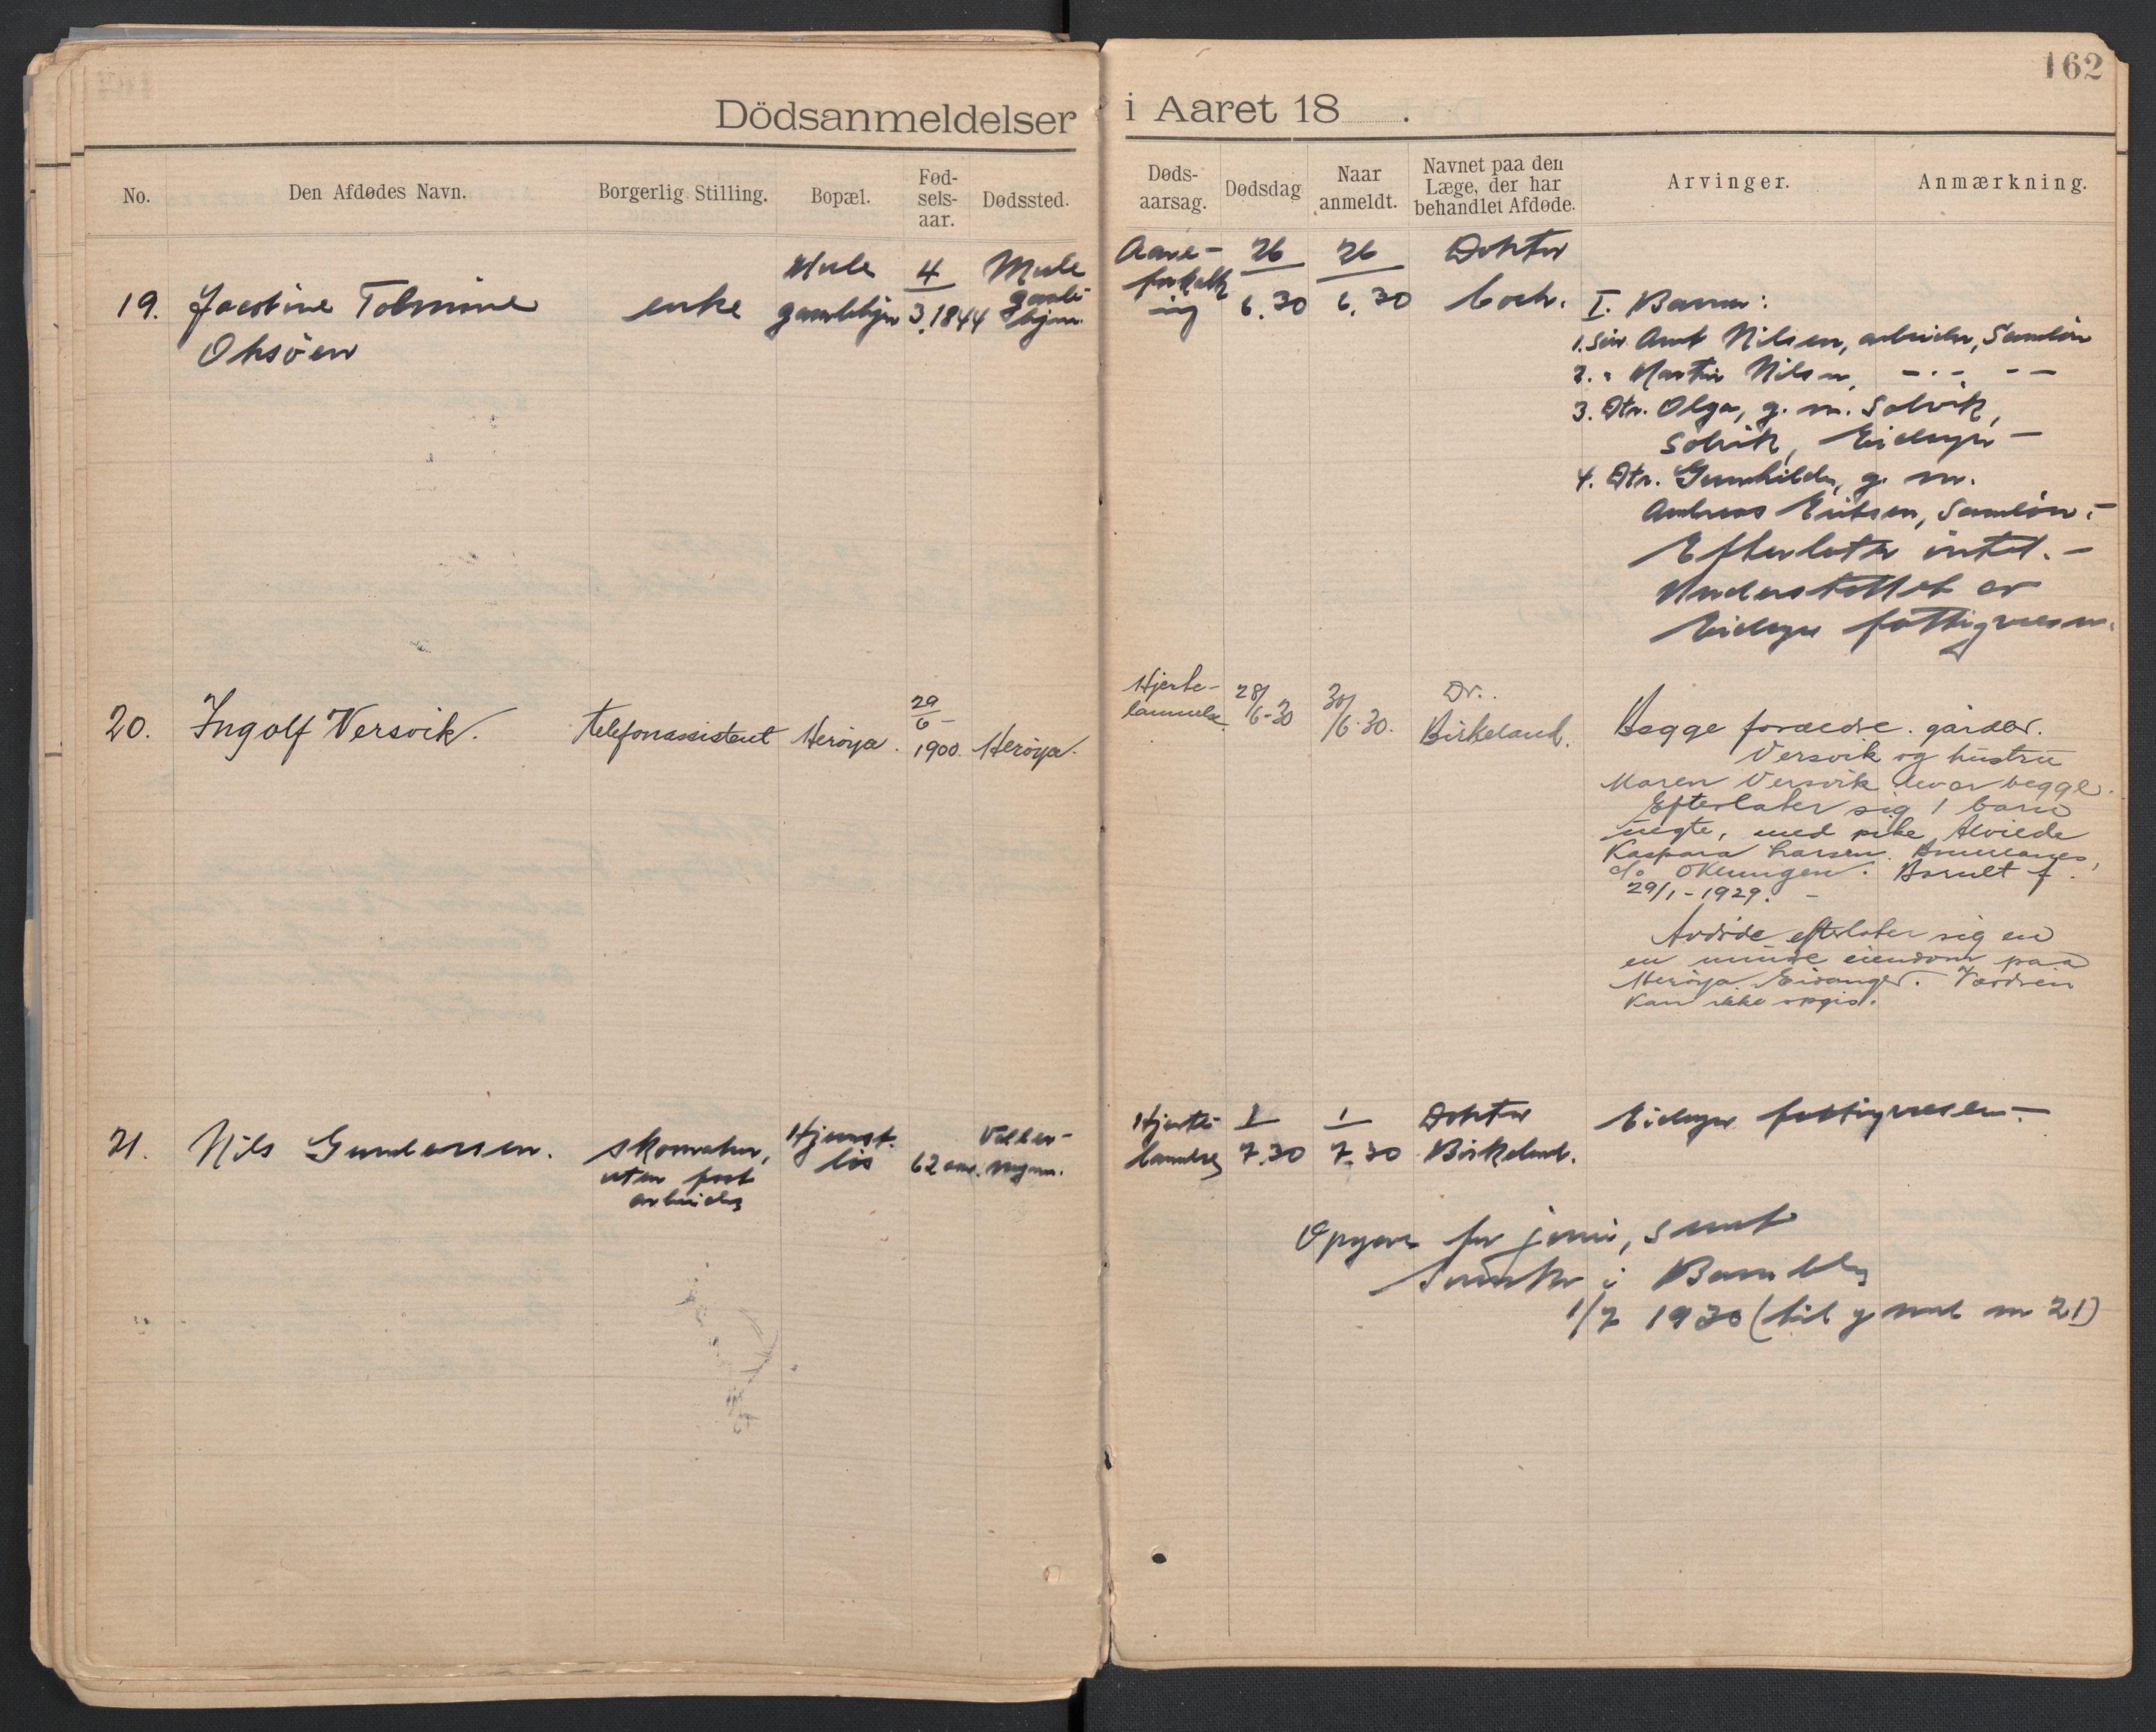 162
Dödsanmeldelser i Aaret 18 .
No. Den Afdødes Navn. Borgerlig Stilling. Bopæl. Fød-sels-aar. Dødssted. Døds-aarsag. Dødsdag Naar anmeldt. Navnet paa den Læge, der har behandlet Afdøde. Arvinger. Anmærkning.
19. Jacobine Tolmine
Oksøen
enke
Mule
gamlehjem
4
3.1844
Mule
gamle
hjem.
Aare-
forkalk
ing
26
6.30
26
6.30
Doktor
Coch.
I. Barn:
1. Søn Amt Nilsen, arbeider, Sandøen
2. " Martin Nilsen, -"- --
3. Dtr. Olga, g. m. Solvik,
Solvik, Eidanger -
4. Dtr. Gunhilda, g. m.
Andreas Eriksen, Sandøen. -
Efterlater intet. -
Understøttet av
Eidanger fattigvesen.
20. Ingolf Versvik.
telefonassistent
Herøya.
29
6 -
1900.
Herøya.
Hjerte-
lammelse.
28/
6-30
30/
6.30.
Dr.
Birkeland.
Begge forældre. gårdbr.
Versvik og hustru
Maren Versvik lever begge.
Efterlater sig 1 barn
uegte, med pike Alvilde
Kaspara Larsen.
do Oklungen. Barnet f.
29/1-1929. -
Avdøde efterlater sig en
en mindre eiendom paa
Herøya Eidanger. Værdien
kan ikke opgis.
21. Nils Gundersen.
skomaker,
uten fast
arbeide
Hjemst.
løs
62 aar.
Hjerte
lammelse
1
7.30
1
7.30
Doktor
Birkeland.
Eidanger fattigvesen. -
Opgave for juni, sendt
i Bamble
1/7 1930 (til og med nr 21)